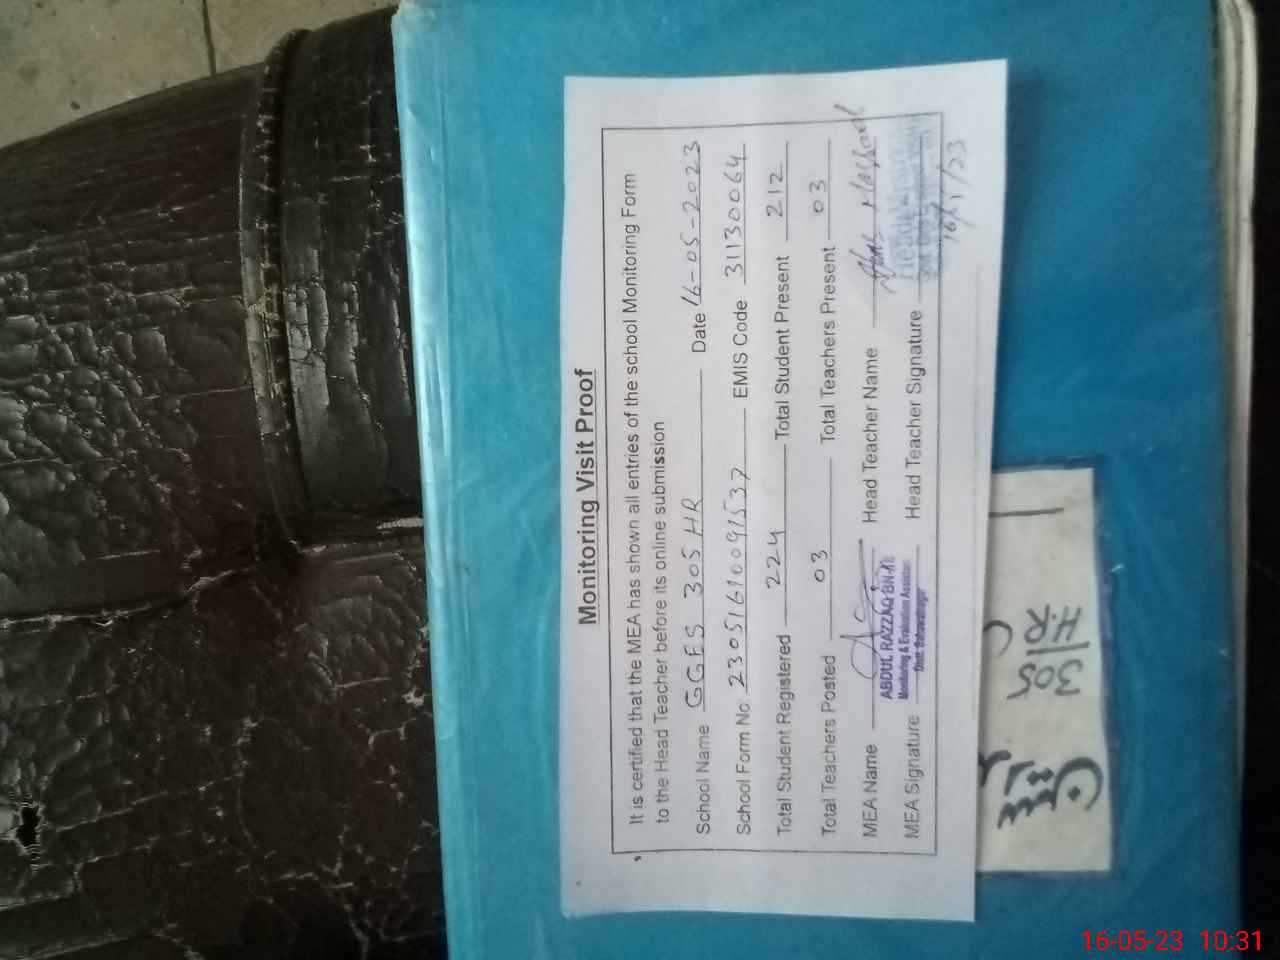 Monitoring Visit Proof
It is certified that the MEA has shown all entries of the school Monitoring Form
to the Head Teacher before its online submission
School Name GGES 305 HR Date 16-05-2023
School Form No. 23051610091537 EMIS Code 31130064
Total Student Registered 224 Total Student Present 212
Total Teachers Posted 03 Total Teachers Present 03
MEA Name Head Teacher Name
ABDUL RAZZAQ BN-
Monitoring & Evaluation Assistant
Distt. Bahawalnagar
MEA Signature Head Teacher Signature
305
H.R
16-05-23 10:31